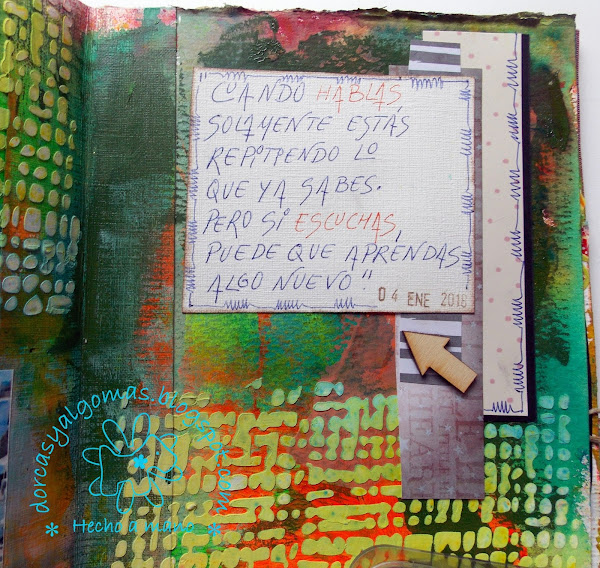 "CUANDO HABLAS,
SOLAMENTE ESTÁS
REPITIENDO LO
QUE YA SABES.
PERO SI ESCUCHAS,
PUEDE QUE APRENDAS
ALGO NUEVO"
04 ENE 2018
dorcasyalgomas.blogspot.com
* Hecho a mano *